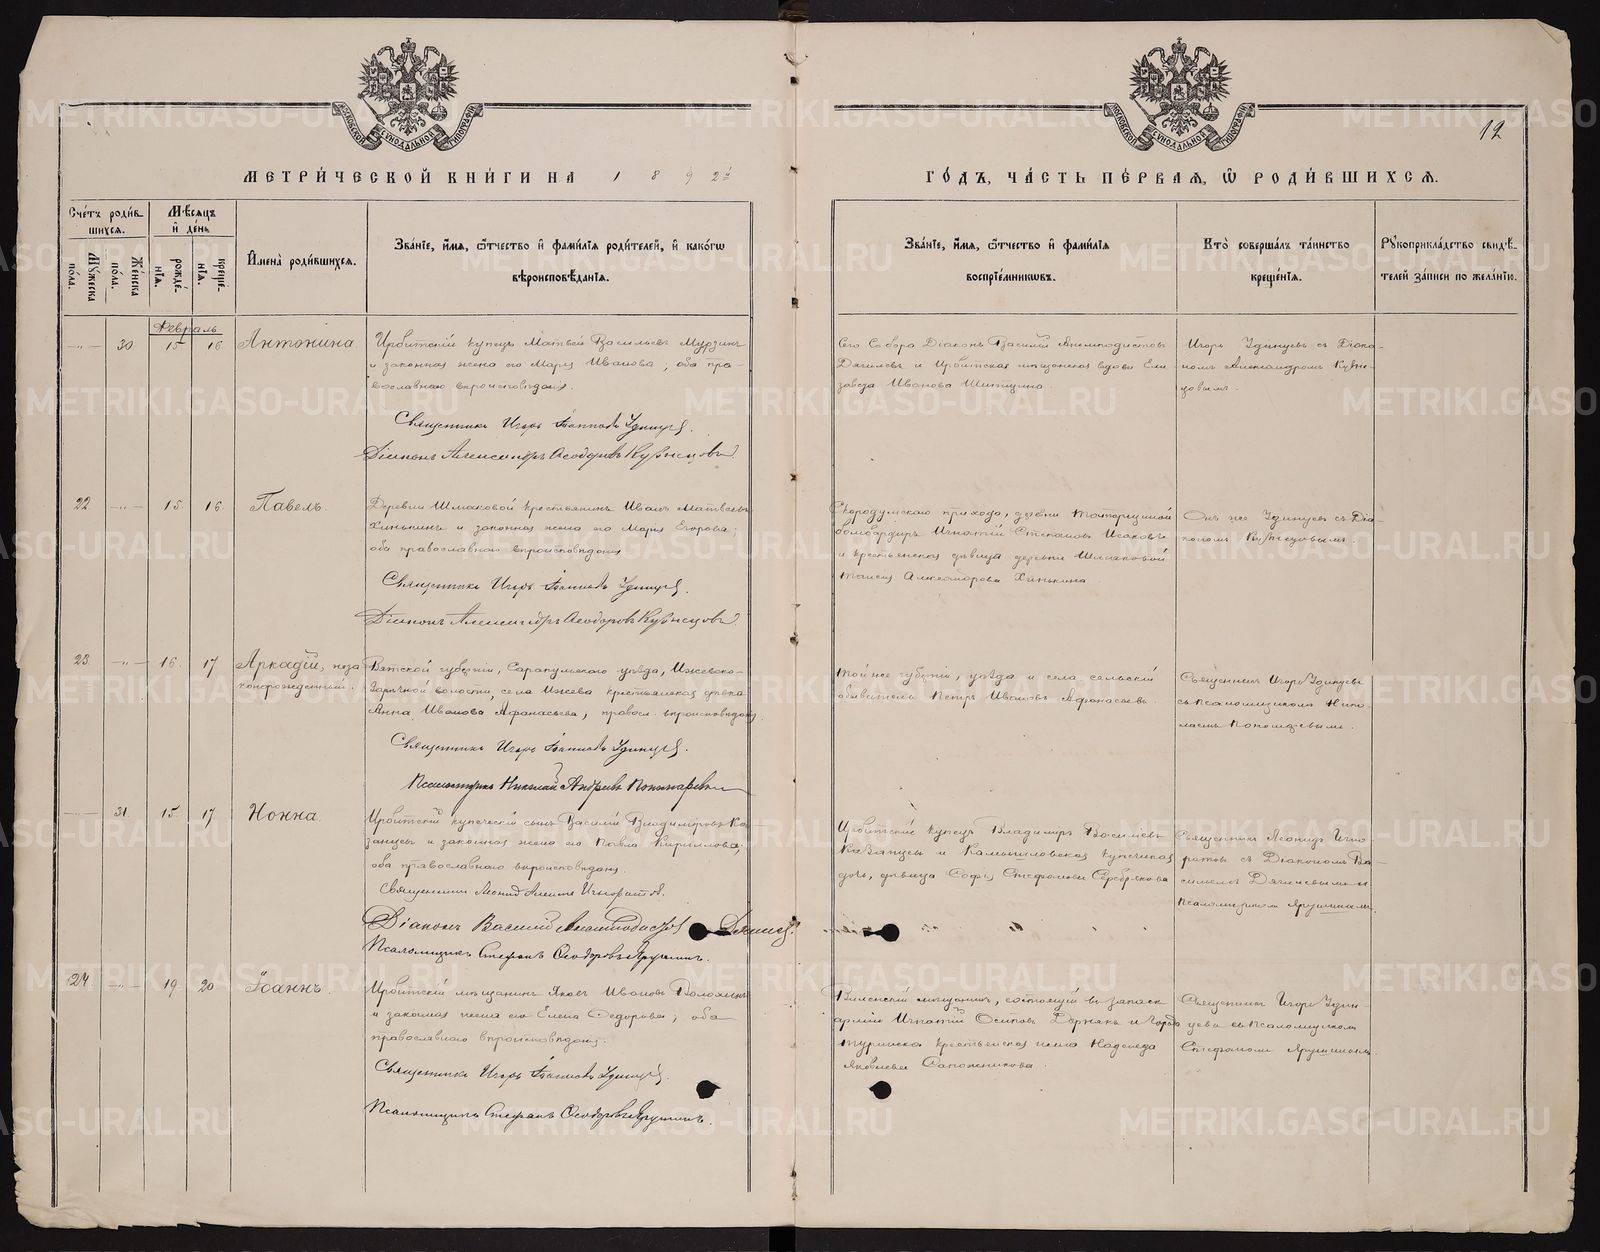 МОСКОВСКОЙ СѴНОДАЛЬНОЙ ТИПОГРАФІИ
МОСКОВСКОЙ СѴНОДАЛЬНОЙ ТИПОГРАФІИ
12
МЕТРИ́ЧЕСКОЙ КНИ́ГИ НА 1892й
ГО́ДЪ, ЧА́СТЬ ПЕ́РВАЯ, Ѡ РОДИ́ВШИХСЯ.
Сче́тъ роди́в-
шихся.
Мꙋ́жеска по́ла.
Же́нска по́ла.
Мѣ́сяцъ и҆ де́нь
рожде́-
нїя.
креще́-
нїя.
И҆мена̀ роди́вшихся.
Зва́нїе, и҆́мя, ѻ҆́тчество и҆ фами́лїя роди́телей, и҆ како́гѡ
вѣроисповѣ́данїя.
Зва́нїе, и҆́мя, ѻ҆́тчество и҆ фами́лїя
воспрїе́мникѡвъ.
Кто̀ соверша́лъ та́инство
креще́нїя.
Рꙋкоприкла́дство свидѣ́-
телей за́писи по жела́нїю.
Февраль
30 15 16 Антонина
Ирбитскій купецъ Матвѣй Васильевъ Мурзинъ
и законная жена его Марія Иванова, оба пра-
вославнаго вѣроисповѣданія.
Священникъ Игорь Іоанновъ Удинцевъ.
Діаконъ Александръ Ѳеодоровъ Кузнецовъ
Сего Собора Діаконъ Василій Анемподистовъ
Дягилевъ и Ирбитская мѣщанская вдова Ели-
завета Иванова
Игорь Удинцевъ съ Діако-
номъ Александромъ Кузне-
цовымъ.
22 15 16 Павелъ
Деревни Шмаковой крестьянинъ Иванъ Матвѣевъ
Хинькинъ и законная жена его Марія Егорова;
оба православнаго вѣроисповѣданія
Священникъ Игорь Іоанновъ Удинцевъ.
Діаконъ Александръ Ѳеодоровъ Кузнецовъ
Скородумскаго прихода, деревни
бомбардиръ Игнатій Степановъ Исаковъ
и крестьянская дѣвица деревни Шмаковой
Таисія Александрова Хинькина
Онъ же Удинцевъ съ Діа-
кономъ Кузнецовымъ.
23 16 17 Аркадій, неза
коннорожденный.
Вятской губерніи, Сарапульскаго уѣзда, Ижевско-
Зарѣчной волости, села Ижева крестьянская дѣвка
Анна Иванова Афанасьева, правосл. вѣроисповѣданія.
Священникъ Игорь Іоанновъ Удинцевъ.
Псаломщикъ Николай Андреевъ Пономаревъ
Той же губерніи, уѣзда и села сельскій
обыватель Петръ Ивановъ Афанасьевъ.
Священникъ Игорь Удинцевъ
съ псаломщикомъ Нико-
лаемъ Пономаревымъ.
31 15 17 Нонна
Ирбитскій купеческій сынъ Василій Владиміровъ Ка-
занцевъ и законная жена его Павла Кириллова,
оба православнаго вѣроисповѣданія.
Священникъ Леонидъ Игноратовъ.
Діаконъ Василій Анемподистовъ Дягилевъ.
Псаломщикъ Стефанъ Ѳеодоровъ Ярушинъ.
Ирбитскій купецъ Владиміръ Васильевъ
Казанцевъ и Камышловская купеческая
дочь, дѣвица Софія Стефанова Серебрякова
Священникъ Леонидъ Игно-
ратовъ съ Діакономъ Ва-
силіемъ Дягилевымъ и
Псаломщикомъ Ярушинымъ.
24 19 20 Іоаннъ
Ирбитскій мѣщанинъ Яковъ Ивановъ Волохинъ
и законная жена его Елена Ѳедорова; оба
православнаго вѣроисповѣданія.
Священникъ Игорь Іоанновъ Удинцевъ.
Псаломщикъ Стефанъ Ѳеодоровъ Ярушинъ.
Виленскій мѣщанинъ, состоящій въ запасѣ
арміи Игнатій Осиповъ и города
Туринска крестьянская жена Надежда
Яковлева Сапожникова.
Священникъ Игорь Удин-
цевъ съ Псаломщикомъ
Стефаномъ Ярушинымъ.
METRIKI.GASO-URAL.RU